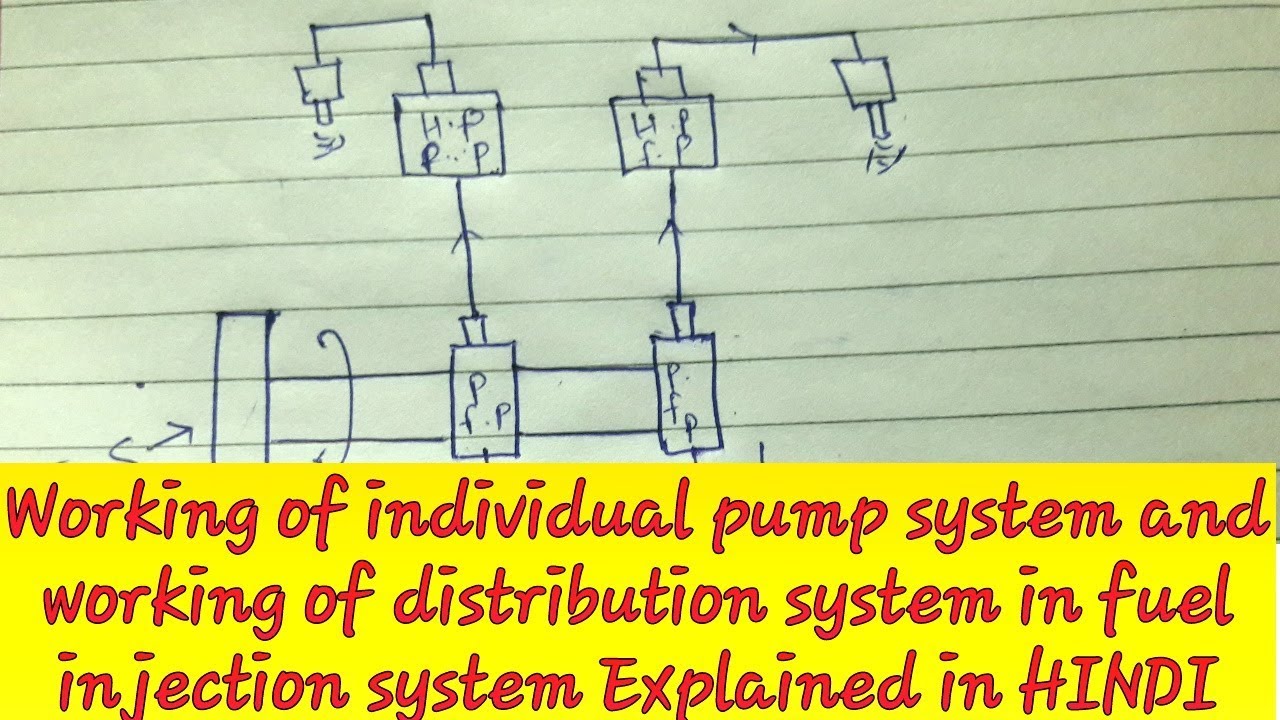 H.P H.P
P..P f.P
P P.
f.P f
P
Working of individual pump system and
working of distribution system in fuel
injection system Explained in HINDI